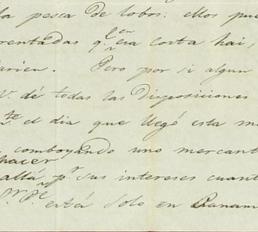 la pesca de lobos. Ellos pue
rentadas qe en era corta hai,
arien. Pero por si algun
Vd dé todas las Disposiciones
te el dia que llegó esta m
comboyando uno mercant
hacer
allá pr sus intereses cuant
está Solo en Panam